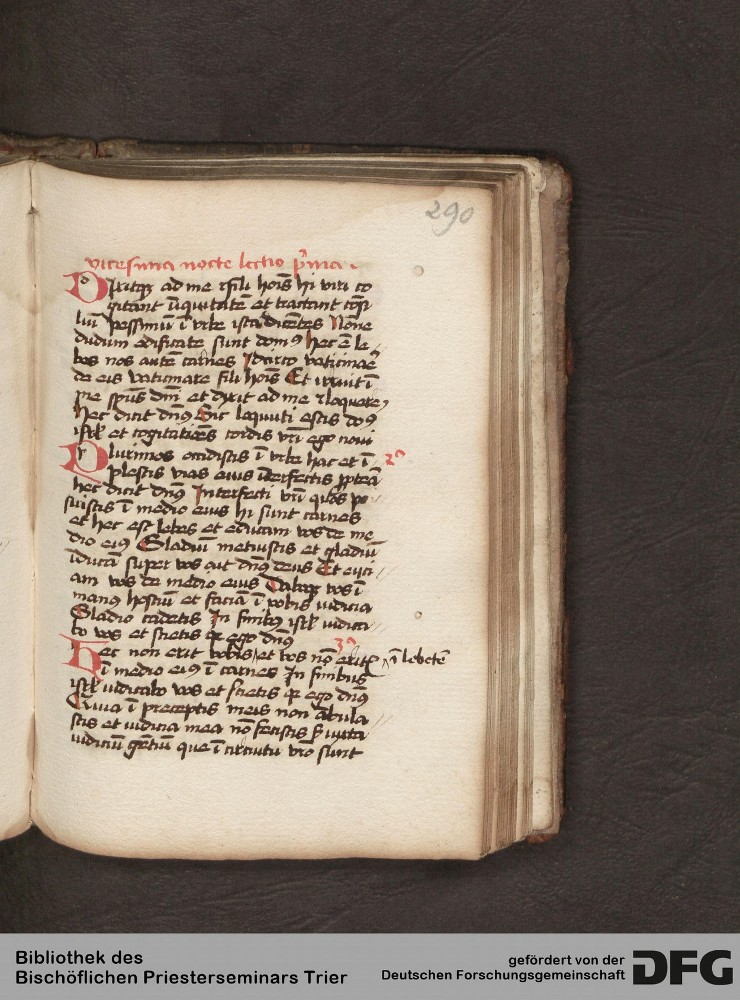 290
vicesima nocte lectio p̃ma
Dixitqꝫ ad me fili hoĩs hi viri co
gitant iniquitatẽ et tractant cõsi
liũ pessimũ ĩ vrbe ista dicẽtes Nõne
dudum edificate sunt domꝰ hec ẽ le
bes nos autẽ carnes Idcirco vaticinare
de eis vaticinare fili hoĩs Et irruit ĩ
me spũs dñi et dixit ad me loquere
hec dicit dñs Sic loquuti estis domꝰ
isrł et cogitatiões cordis vrĩ ego novi
Plurimos occidistis ĩ vrbe hac et ĩ 2ª
plestis vias eius ĩterfectis ꝓpterea
hec dicit dñs Interfecti vrĩ quos po
suistis ĩ medio eius hi sunt carnes
et hec est lebes et educam vos de me
dio eiꝰ Gladiũ metuistis et gladiũ
ĩducã super vos ait dñs deus Et eyci
am vos de medio eius Daboqꝫ vos ĩ
manꝰ hostiũ et faciã ĩ vobis iudicia
Gladio cadetis In finibꝰ isrł iudica
bo vos et scietis qꝛ ego dñs
3ª
Hec non erit vobis et vos nõ eritis ĩ lebetẽ
ĩ medio eiꝰ ĩ carnes In finibus
isrł iudicabo vos et scietis qꝛ ego dñs
Quia ĩ preceptis meis non ambula
stis et iudicia mea nõ fecistis sꝫ iuxta
iudiciũ gẽtiũ que ĩ circuitu vro sunt
Bibliothek des
Bischöflichen Priesterseminars Trier
gefördert von der
Deutschen Forschungsgemeinschaft
DFG